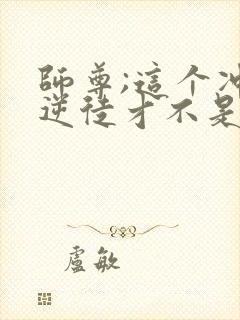 師尊;這个冲
逆徒才不是
盧敏